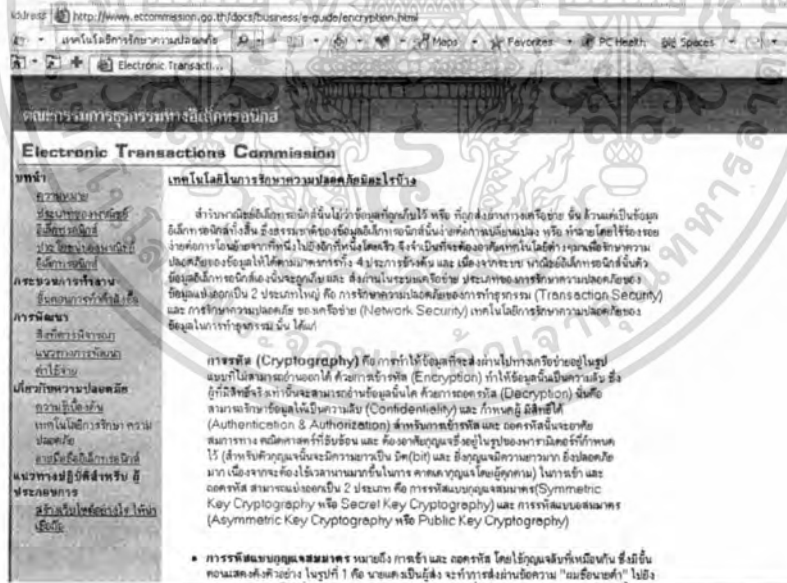 Address http://www.etcommission.go.th/docs/business/e-guide/encryption.html
เทคโนโลยีการรักษาความปลอดภัย Maps Favorites PC Health Spaces
Electronic Transacti...
คณะกรรมการธุรกรรมทางอิเล็กทรอนิกส์
Electronic Transactions Commission
บทนำ
ความหมาย
ประเภทของพาณิชย์
อิเล็กทรอนิกส์
ประโยชน์ของพาณิชย์
อิเล็กทรอนิกส์
กระบวนการทำงาน
ขั้นตอนการทำคำสั่งซื้อ
การพัฒนา
สิ่งที่ควรพิจารณา
แนวทางการพัฒนา
ค่าใช้จ่าย
เกี่ยวกับความปลอดภัย
ความรู้เบื้องต้น
เทคโนโลยีการรักษา ความ
ปลอดภัย
ลายมือชื่ออิเล็กทรอนิกส์
แนวทางปฏิบัติสำหรับ ผู้
ประกอบการ
สร้างเว็บไซต์อย่างไร ให้น่า
เชื่อถือ
เทคโนโลยีในการรักษาความปลอดภัยมีอะไรบ้าง
สำหรับพาณิชย์อิเล็กทรอนิกส์นั้นไม่ว่าข้อมูลที่ถูกเก็บไว้ หรือ ที่ถูกส่งผ่านทางเครือข่าย นั้น ล้วนแต่เป็นข้อมูล
อิเล็กทรอนิกส์ทั้งสิ้น ซึ่งธรรมชาติของข้อมูลอิเล็กทรอนิกส์นั้นง่ายต่อการเปลี่ยนแปลง หรือ ทำลายโดยไร้ร่องรอย
ง่ายต่อการโอนย้ายจากที่หนึ่งไปยังอีกที่หนึ่งโดยเร็ว จึงจำเป็นที่จะต้องอาศัยเทคโนโลยีต่างๆมาเพื่อรักษาความ
ปลอดภัยของข้อมูลให้ได้ตามมาตรการทั้ง 4 ประการข้างต้น และ เนื่องจากระบบ พาณิชย์อิเล็กทรอนิกส์นั้นตัว
ข้อมูลอิเล็กทรอนิกส์เองนั้นจะถูกเก็บและ ส่งผ่านในระบบเครือข่าย ประเภทของการรักษาความปลอดภัยของ
ข้อมูลแบ่งออกเป็น 2 ประเภทใหญ่ คือ การรักษาความปลอดภัยของการทำธุรกรรม (Transaction Security)
และ การรักษาความปลอดภัย ของเครือข่าย (Network Security) เทคโนโลยีการรักษาความปลอดภัยของ
ข้อมูลในการทำธุรกรรม นั้น ได้แก่
การรหัส (Cryptography) คือ การทำให้ข้อมูลที่จะส่งผ่านไปทางเครือข่ายอยู่ในรูป
แบบที่ไม่สามารถอ่านออกได้ ด้วยการเข้ารหัส (Encryption) ทำให้ข้อมูลนั้นเป็นความลับ ซึ่ง
ผู้ที่มีสิทธิ์จริงเท่านั้นจะสามารถอ่านข้อมูลนั้นได้ ด้วยการถอดรหัส (Decryption) นั่นคือ
สามารถรักษาข้อมูลให้เป็นความลับ (Confidentiality) และ กำหนดผู้ มีสิทธิ์ได้
(Authentication & Authorization) สำหรับการเข้ารหัส และ ถอดรหัสนั้นจะอาศัย
สมการทาง คณิตศาสตร์ที่ซับซ้อน และ ต้องอาศัยกุญแจซึ่งอยู่ในรูปของพารามิเตอร์ที่กำหนด
ไว้ (สำหรับตัวกุญแจนั้นจะมีความยาวเป็น บิต(bit) และ ยิ่งกุญแจมีความยาวมาก ยิ่งปลอดภัย
มาก เนื่องจากจะต้องใช้เวลานานมากขึ้นในการ คาดเดากุญแจโดยผู้คุกคาม) ในการเข้า และ
ถอดรหัส สามารถแบ่งออกเป็น 2 ประเภท คือ การรหัสแบบกุญแจสมมาตร(Symmetric
Key Cryptography หรือ Secret Key Cryptography) และ การรหัสแบบอสมมาตร
(Asymmetric Key Cryptography หรือ Public Key Cryptography)
• การรหัสแบบกุญแจสมมาตร หมายถึง การเข้า และ ถอดรหัส โดยใช้กุญแจลับที่เหมือนกัน ซึ่งมีขั้น
ตอนแสดงดังตัวอย่าง ในรูปที่ 1 คือ นายแดงเป็นผู้ส่ง จะทำการส่งผ่านข้อความ "ผมชื่อนายดำ" ไปยัง